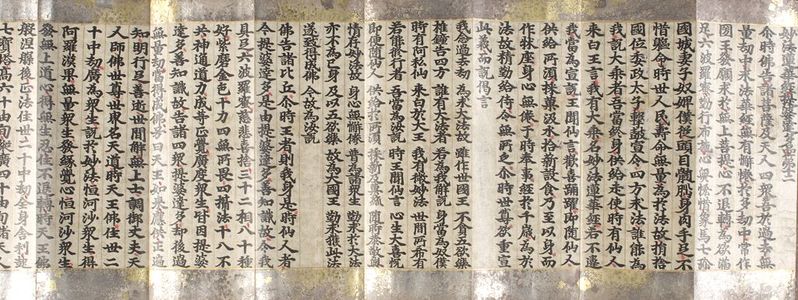 妙法蓮華經提婆達多品第十二
尒時佛告諸菩薩及天人四衆吾於過去無
量劫中求法華經無有懈惓於多劫中常作
國王發願求於無上菩提心不退轉為欲滿
足六波羅蜜勤行布施心無悋惜象馬七珎
國城妻子奴婢僕從頭目髓腦身肉手足不
惜軀命時世人民壽命無量為於法故捐捨
國位委政太子擊皷宣令四方求法誰能為
我說大乗者吾當終身供給走使時有仙人
来白王言我有大乗名妙法蓮華經若不違
我當為宣說王聞仙言歡喜踊躍即随仙人
供給所須採菓汲水拾薪設食乃至以身而
作牀座身心無惓于時奉事經於千歳為於
法故精勤給侍令無所乏尒時世尊欲重宣
此義而說偈言
我念過去劫 為求大法故 雖作世國王 不貪五欲樂
推鍾告四方 誰有大法者 若為我解說 身當為奴僕
時有阿私仙 来白於大王 我有微妙法 世間所希有
若能修行者 吾當為汝說 時王聞仙言 心生大喜悦
即便随仙人 供給於所須 採薪及菓蓏 随時恭敬與
情存妙法故 身心無懈惓 普為諸衆生 勤求於大法
亦不為己身 及以五欲樂 故為大國王 勤求獲此法
遂致得成佛 今故為汝說
佛告諸比丘尒時王者則我身是時仙人者
今提婆達多是由提婆達多善知識故令我
具足六波羅蜜慈悲喜捨三十二相八十種
好紫磨金色十力四無所畏四攝法十八不
共神通道力成等正覺廣度衆生皆因提婆
達多善知識故告諸四衆提婆達多却後過
無量劫當得成佛号曰天王如来應供正遍
知明行足善逝世間解無上士調御丈夫天
人師佛世尊世界名天道時天王佛住世二
十中劫廣為衆生說於妙法恒河沙衆生得
阿羅漢果無量衆生發縁覺心恒河沙衆生
發無上道心得無生忍住不退轉時天王佛
般涅槃後正法住世二十中劫全身舍利起
七寶塔髙六十由旬縱廣四十由旬諸天人